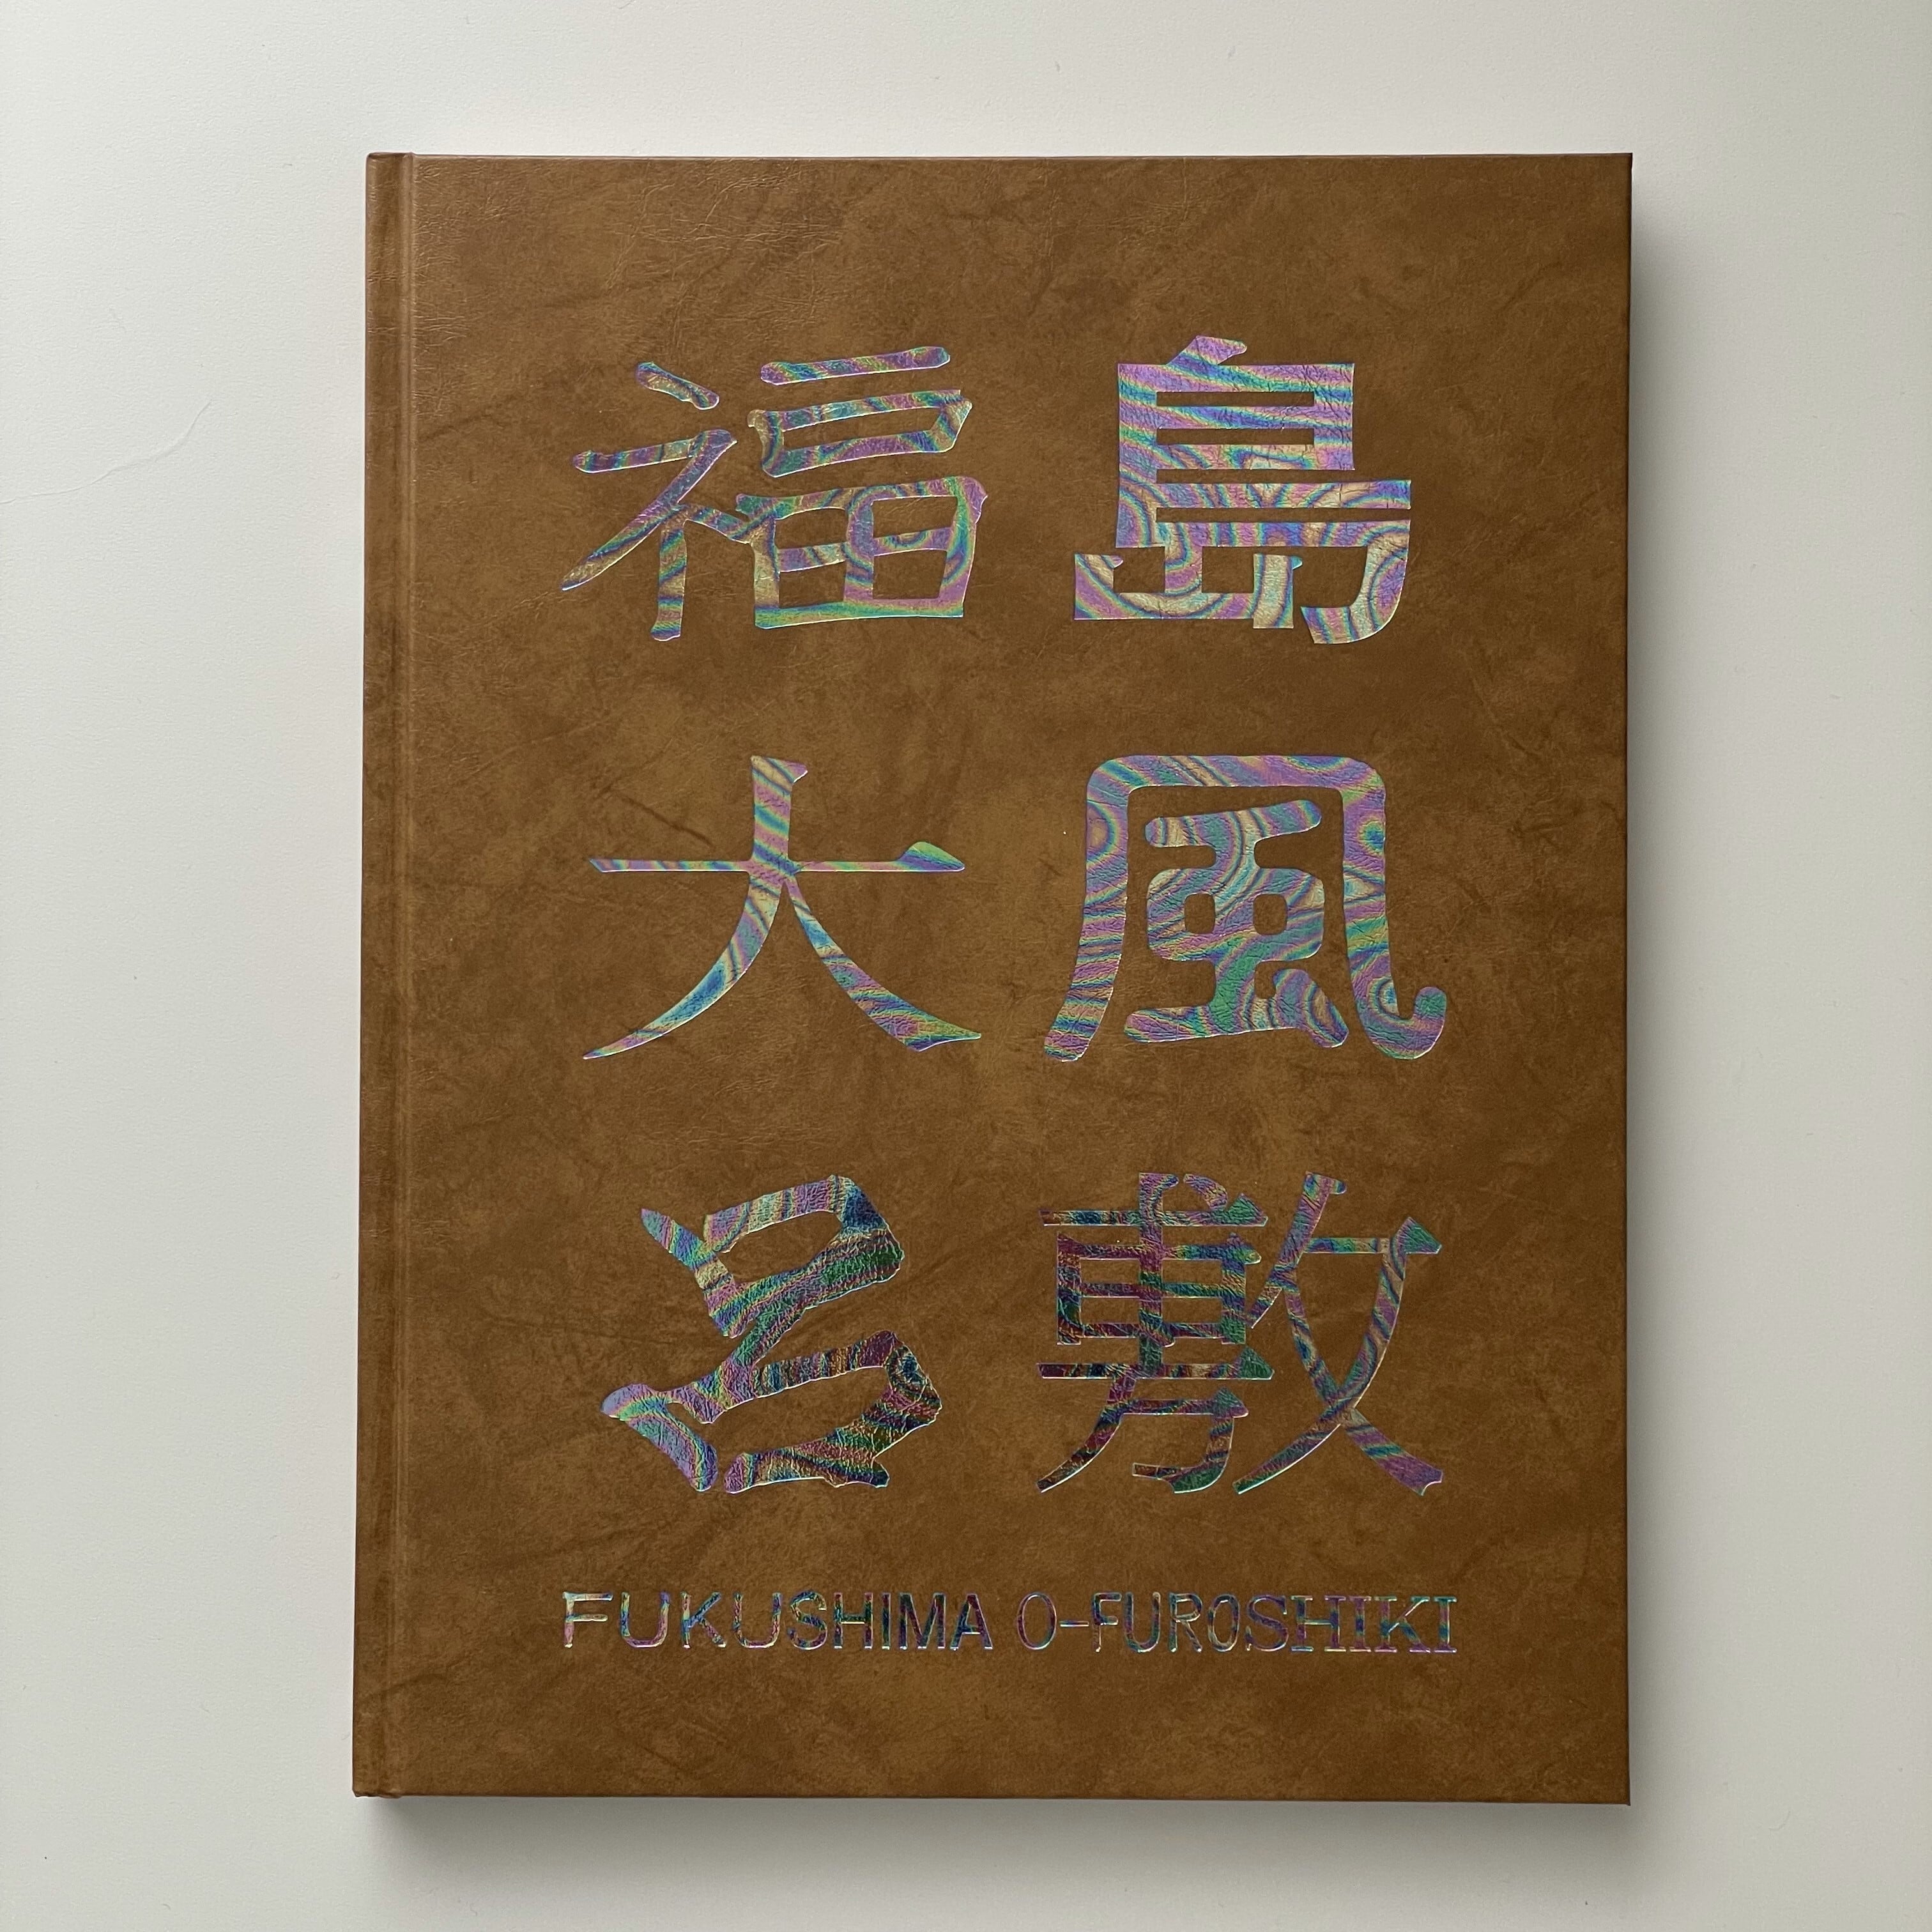 福島
大風
呂敷
FUKUSHIMA O-FUROSHIKI